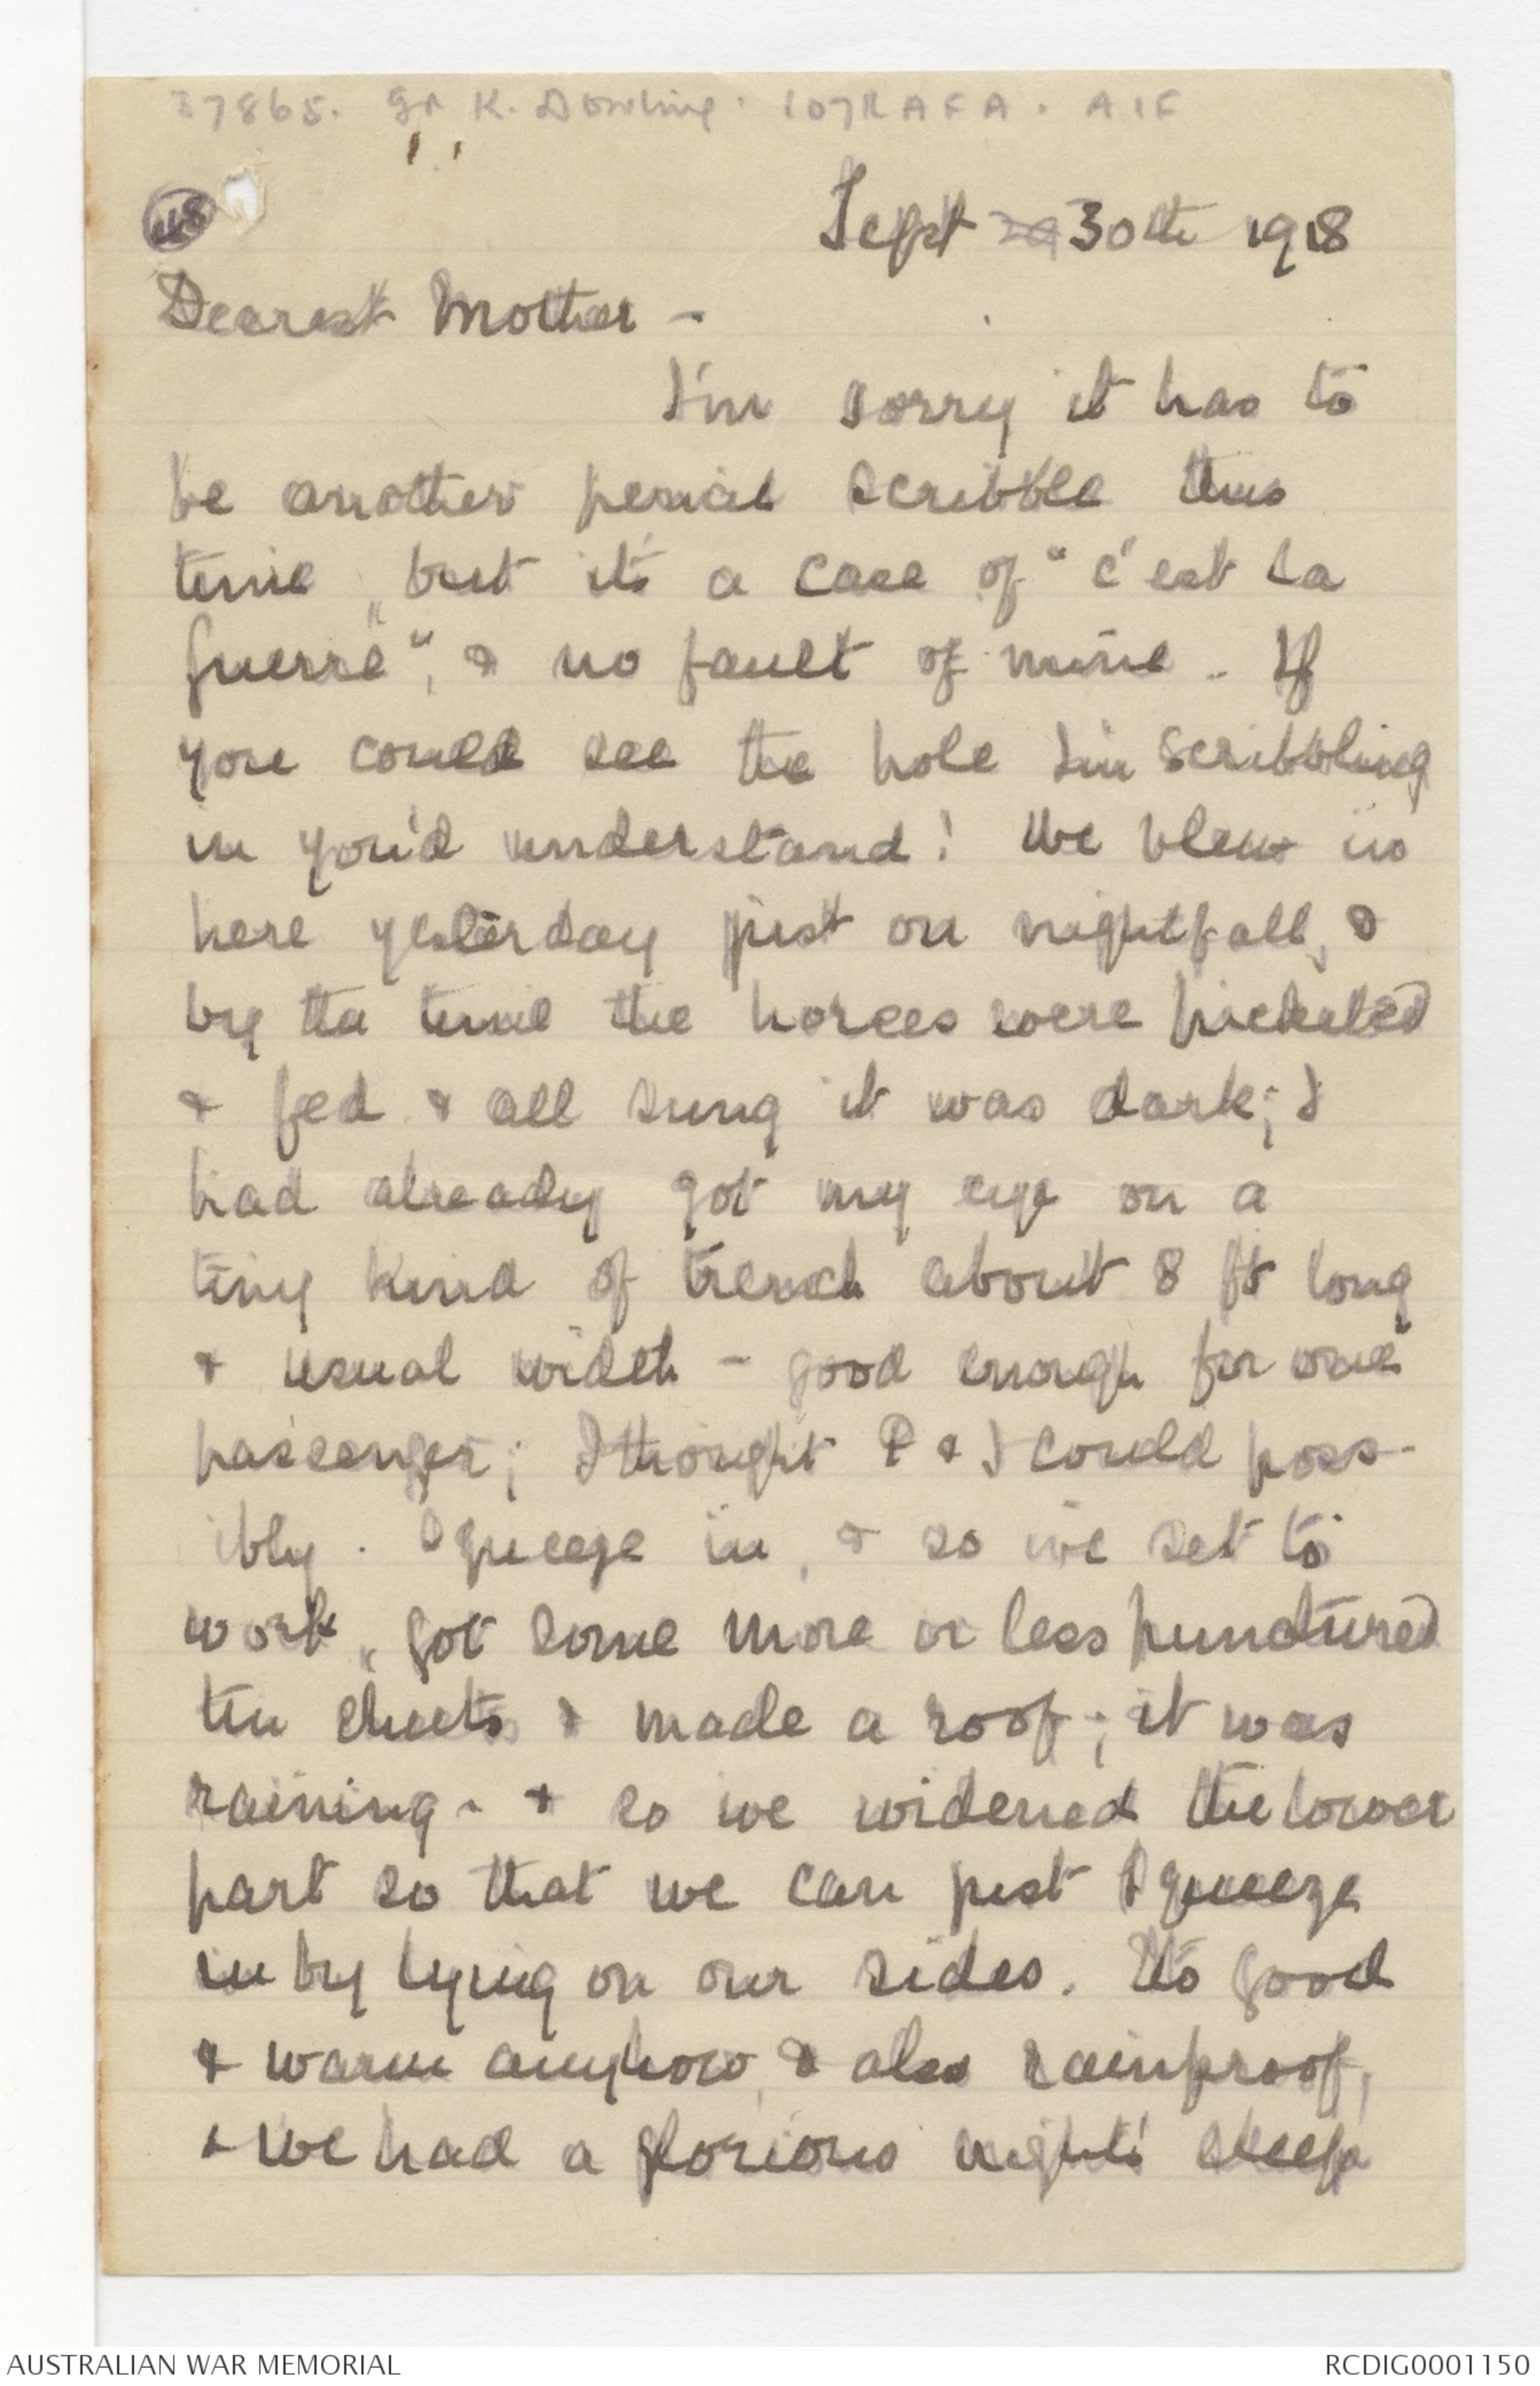 37865. Gr K. Dowling. 107RAFA. AIF
Sept 30th 1918
Dearest Mother -
I'm sorry it has to
be another pencil scribble this
time, but it's a case of "c'est la
guerre", & no fault of mine. If
you could see the hole I'm scribbling
in you'd understand! We blew in
here yesterday just on nightfall, &
by the time the horses were picketed
& fed & all snug it was dark; I
had already got my eye on a
tiny kind of trench about 8 ft long
& usual width - good enough for one
passenger; I thought P & I could poss-
ibly. Squeeze in, & so we set to
work, got some more or less punctured
tin sheets & made a roof; it was
raining - & so we widened the lower
part so that we can just squeeze
in by lying on our sides. It's good
& warm anyhow, & also rainproof,
& we had a glorious night's sleep
AUSTRALIAN WAR MEMORIAL
RCDIG0001150